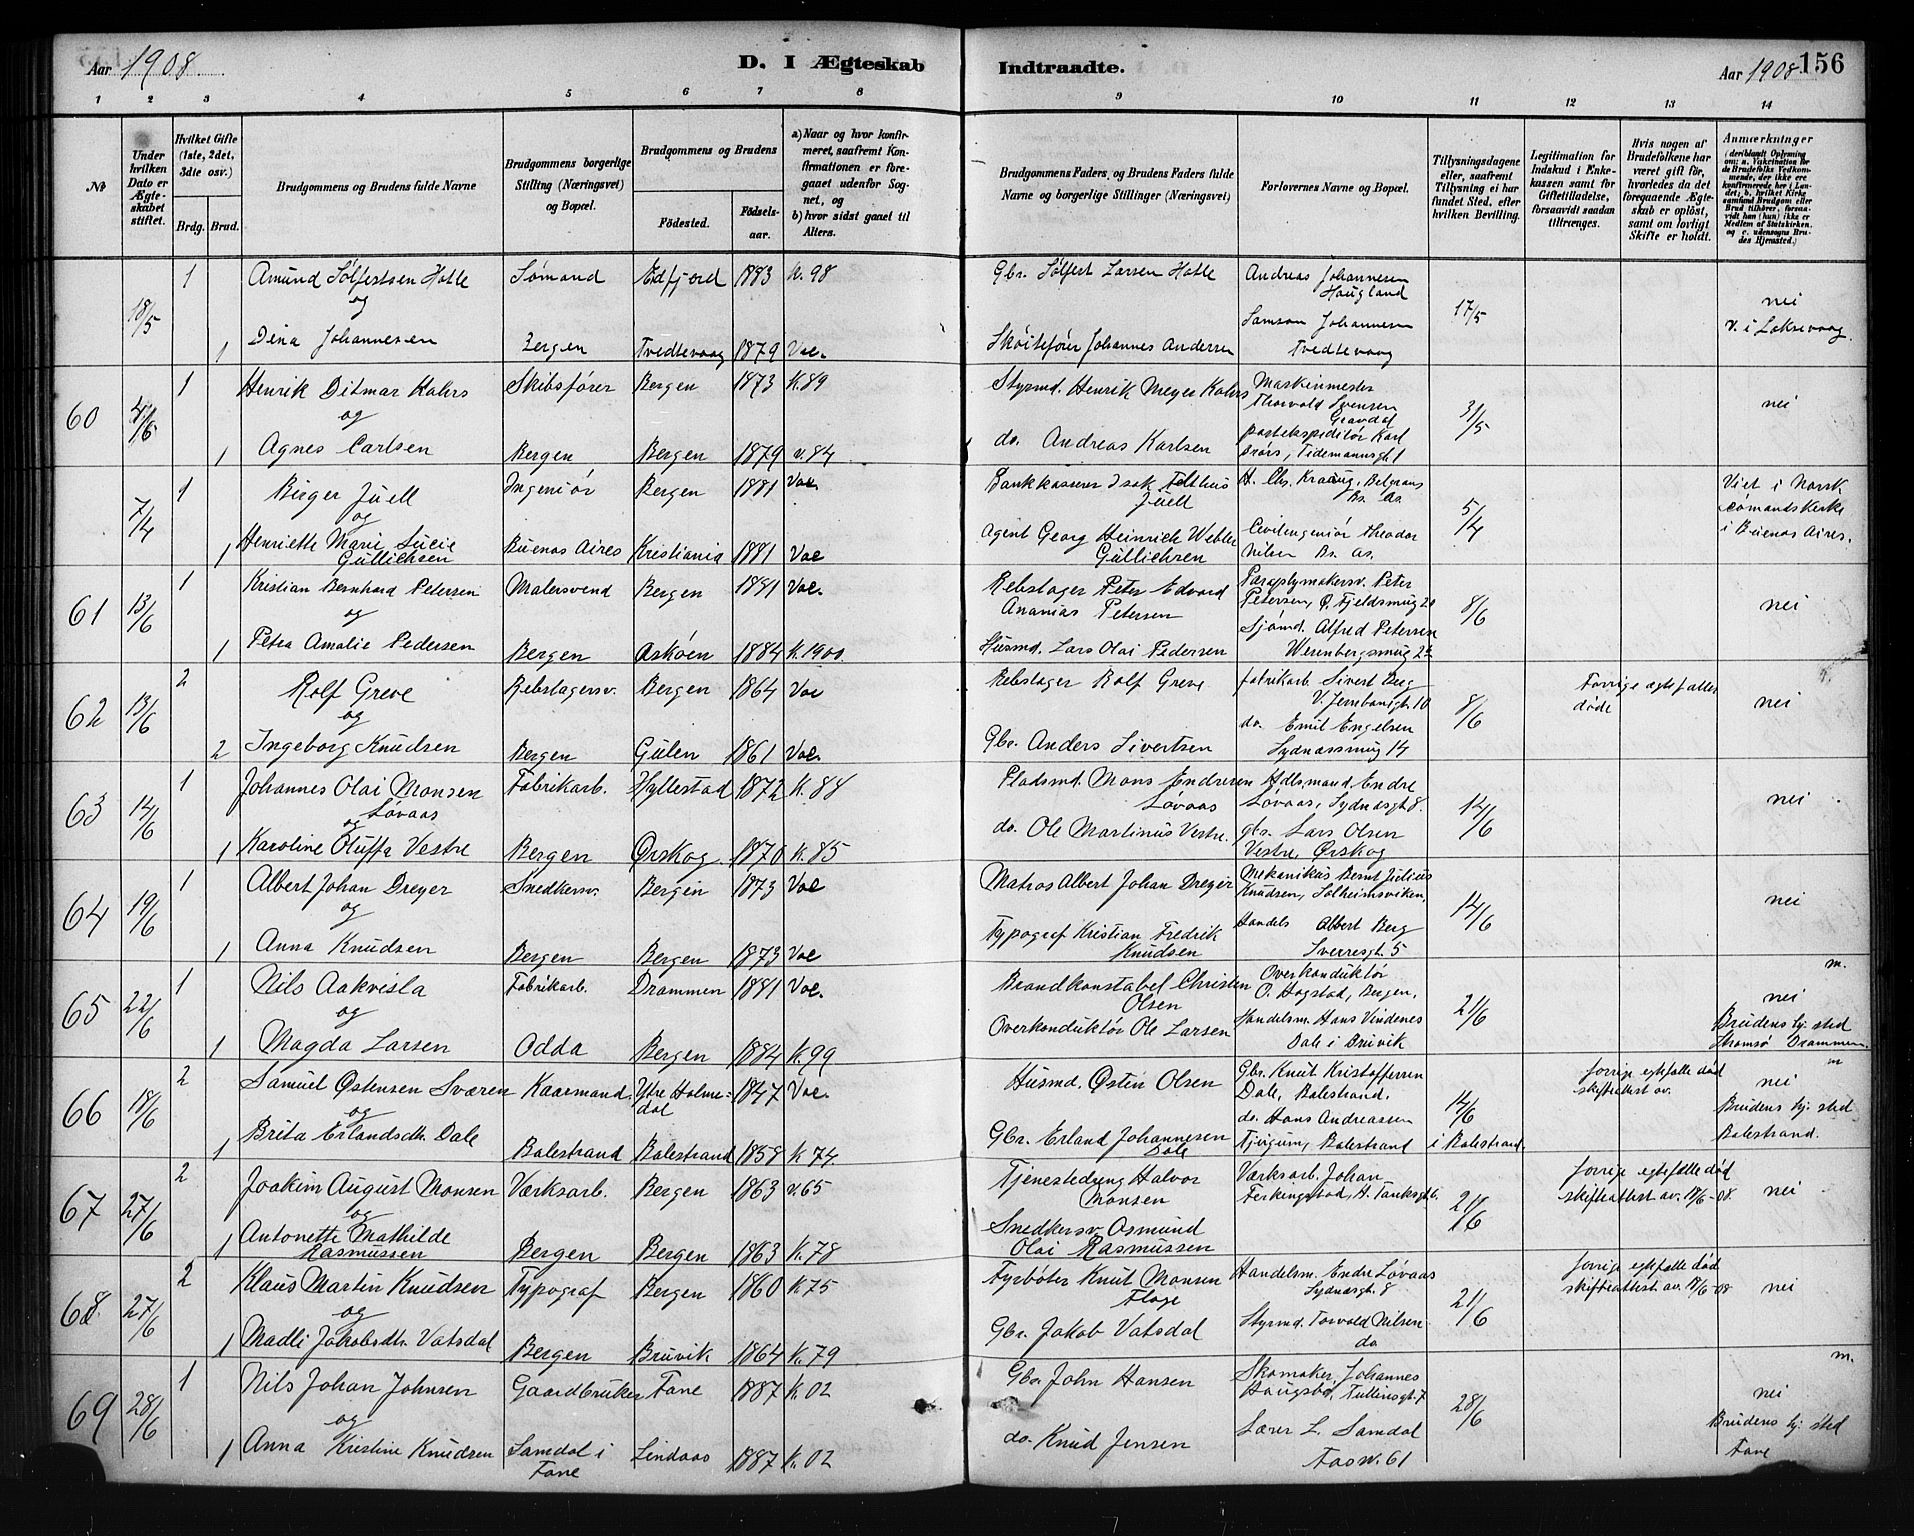 Aar 1908
D. I Ægteskab
Indtraadte.
Aar 1908
156
1 2 3 4 5 6 7 8 9 10 11 12 13 14
No
Under hvilken Dato er Ægteskabet stiftet.
Hvilket Gifte (1ste, 2det, 3die osv.)
Brdg. Brud.
Brudgommens og Brudens fulde Navne
Brudgommens borgerlige Stilling (Næringsvei) og Bopæl.
Brudgommens og Brudens
Fødested.
Fødselsaar.
a) Naar og hvor konfirmeret, saafremt Konfirmationen er foregaaet udenfor Sognet, og
b) hvor sidst gaaet til Alters.
Brudgommens Faders og Brudens Faders fulde Navne og borgerlige Stillinger (Næringsvei)
Forlovernes Navne og Bopæl.
Tillysningsdagene eller, saafremt Tillysning ei har fundet Sted, efter hvilken Bevilling.
Legitimation for Indskud i Enkekassen samt for Giftetilladelse, forsaavidt saadan tiltrænges.
Hvis nogen af Brudefolkene har været gift før, hvorledes da det foregaaende Ægteskab er opløst, samt om lovligt Skifte er holdt.
Anmærkninger
18/5 1 Amund Sølfestsen Hotle Sømand Edfjord 1883 k. 98 Gbr. Sølfest Larsen Hotle Andreas Johannesen Haugland 17/5 nei
og Samson Johannesen v. i Laksevaag.
1 Dina Johannesen Bergen Tvedtevaag 1879 Vac. Skøitefører Johannes Andersen Tvedtevaag
60 4/6 1 Henrik Ditmar Kahrs Skibsfører Bergen 1873 k. 89 Styrmd. Henrik Meyer Kahrs Maskinmester Thorvald Svensen Gravdal 31/5 nei
og postekspeditør Karl
1 Agnes Carlsen Bergen Bergen 1879 v. 84 do. Andreas Karlsen Brørs, Tidemannsgt. 1
7/4 1 Birger Juell Ingeniør Bergen 1881 Vac. Bankkasserer Isak Felthus Juell H. Chr. Kraaug, Belgrano Bs. As. 5/4 Viet i Norsk
og sømandskirke
1 Henriette Marie Lucie Gullichsen Buenos Aires Kristiania 1881 Vac Agent Georg Heinrich Gullichsen Civilingeniør Theodor Nilsen Bs. As. i Buenos Aires.
61 13/6 1 Kristian Bernhard Petersen Malersvend Bergen 1881 Vac. Rebslager Peter Edvard Ananias Petersen Paraplymakersv. Peter Petersen, Ø. Fjeldsmug 20 8/6 nei
og Sjømd. Alfred Petersen
1 Petra Amalie Pedersen Bergen Askøen 1884 K. 1900. Husmd. Lars Olai Pedersen Werenbergsmug 24
62 13/6 2 Rolf Greve Rebslagersv. Bergen 1864 Vac Rebslager Rolf Greve fabrikarb. Sivert Berg V. Jernbanegt. 10 8/6 Forrige ægtefæller døde nei
og do. Emil Engelsen
2 Ingeborg Knudsen Bergen Gulen 1861 Vac. Gbr. Anders Sivertsen Sydnæssmug 14
63 14/6 1 Johannes Olai Monsen Løvaas Fabrikarb. Hyllestad 1872 K. 88 Pladsmd. Mons Endresen Løvaas Adlsmand Endre Løvaas, Sydnæsgt. 8. 14/6 nei
og gbr. Lars Olsen
1 Karoline Oluffa Vestre Bergen Ørskog 1870 K. 85 do. Ole Martinus Vestre. Vestre, Ørskog
64 19/6 1 Albert Johan Dreyer Snedkersv. Bergen 1873 Vac Matros Albert Johan Dreyer Mekanikus Bernt Julius Knudsen, Solheimsviken. 14/6 nei
og Handels Albert Berg
1 Anna Knudsen Bergen Bergen 1873 Vac Typograf Kristian Fredrik Knudsen Sverresgt. 5
65 22/6 1 Nils Aakvisla Fabrikarb. Drammen 1881 Vac. Brandkonstabel Christen Olsen Overkonduktør O. Hogstad, Bergen. 21/6 m. nei
og Handelsm. Hans Vindenes Brudens hj. sted
1 Magda Larsen Odda Bergen 1884 K. 99 Overkonduktør Ole Larsen Dale i Bruvik Strømsø Drammen.
66 18/6 2 Samuel Østensen Sværen Kaarmand. Ytre Holmedal 1847 Vac. Husmd. Østen Olsen Gbr. Knut Kristoffersen Dale, Balestrand. 14/6 forrige egtefælle død skifteattest av. m nei
og do. Hans Andreassen Brudens hj. sted
1 Brita Erlandsdtr. Dale Balestrand Balestrand 1858 K 74. Gbr. Erland Johannesen Dale Tjugum, Balestrand i Balestrand Balestrand.
67 27/6 2 Joakim August Monsen Værksarb. Bergen 1863 v. 65 Tjenestedreng Halvor Monsen Værksarb. Johan Ferkingstad, H. Tanksgt. 6. 21/6 forrige egtefælle død skifteattest av. 18/6-08. nei
og
1 Antonette Mathilde Rasmussen Bergen Bergen 1863 K. 78 Snedkersv. Osmund Olai Rasmussen
68 27/6 2 Klaus Martin Knudsen Typograf Bergen 1860 K. 75 Fyrbøter Knut Monsen Flage Handelsm. Endre Løvaas Sydnæsgt. 8 21/6 forrige egtefælle død skifteattest av. 18/6-08 nei
og
1 Madli Jakobsdtr. Vatsdal Bergen Bruvik 1864 K. 79 Gbr. Jakob Vatsdal Styrmd. Torvald Nilsen do
69 28/6 1 Nils Johan Johnsen Gaardbruker Fane 1887 K. 02 Gbr John Hansen Skomaker Johannes Haugsbø, Tullinsgt. 7 28/6 m. nei
og Lærer L. Samdal Brudens hj. sted
1 Anna Kristine Knudsen Samdal i Fane Lindaas 1887 K. 02 do. Knud Jensen Fane